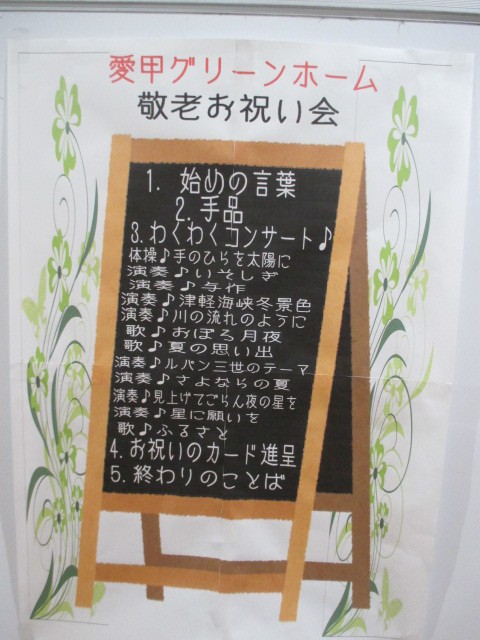 愛甲グリーンホーム
敬老お祝い会
1. 始めの言葉
2. 手品
3. わくわくコンサート♪
体操♪手のひらを太陽に
演奏♪いそしぎ
演奏♪与作
演奏♪津軽海峡冬景色
演奏♪川の流れのように
歌♪おぼろ月夜
歌♪夏の思い出
演奏♪ルパン三世のテーマ
演奏♪さよならの夏
演奏♪見上げてごらん夜の星を
演奏♪星に願いを
歌♪ふるさと
4. お祝いのカード進呈
5. 終わりのことば